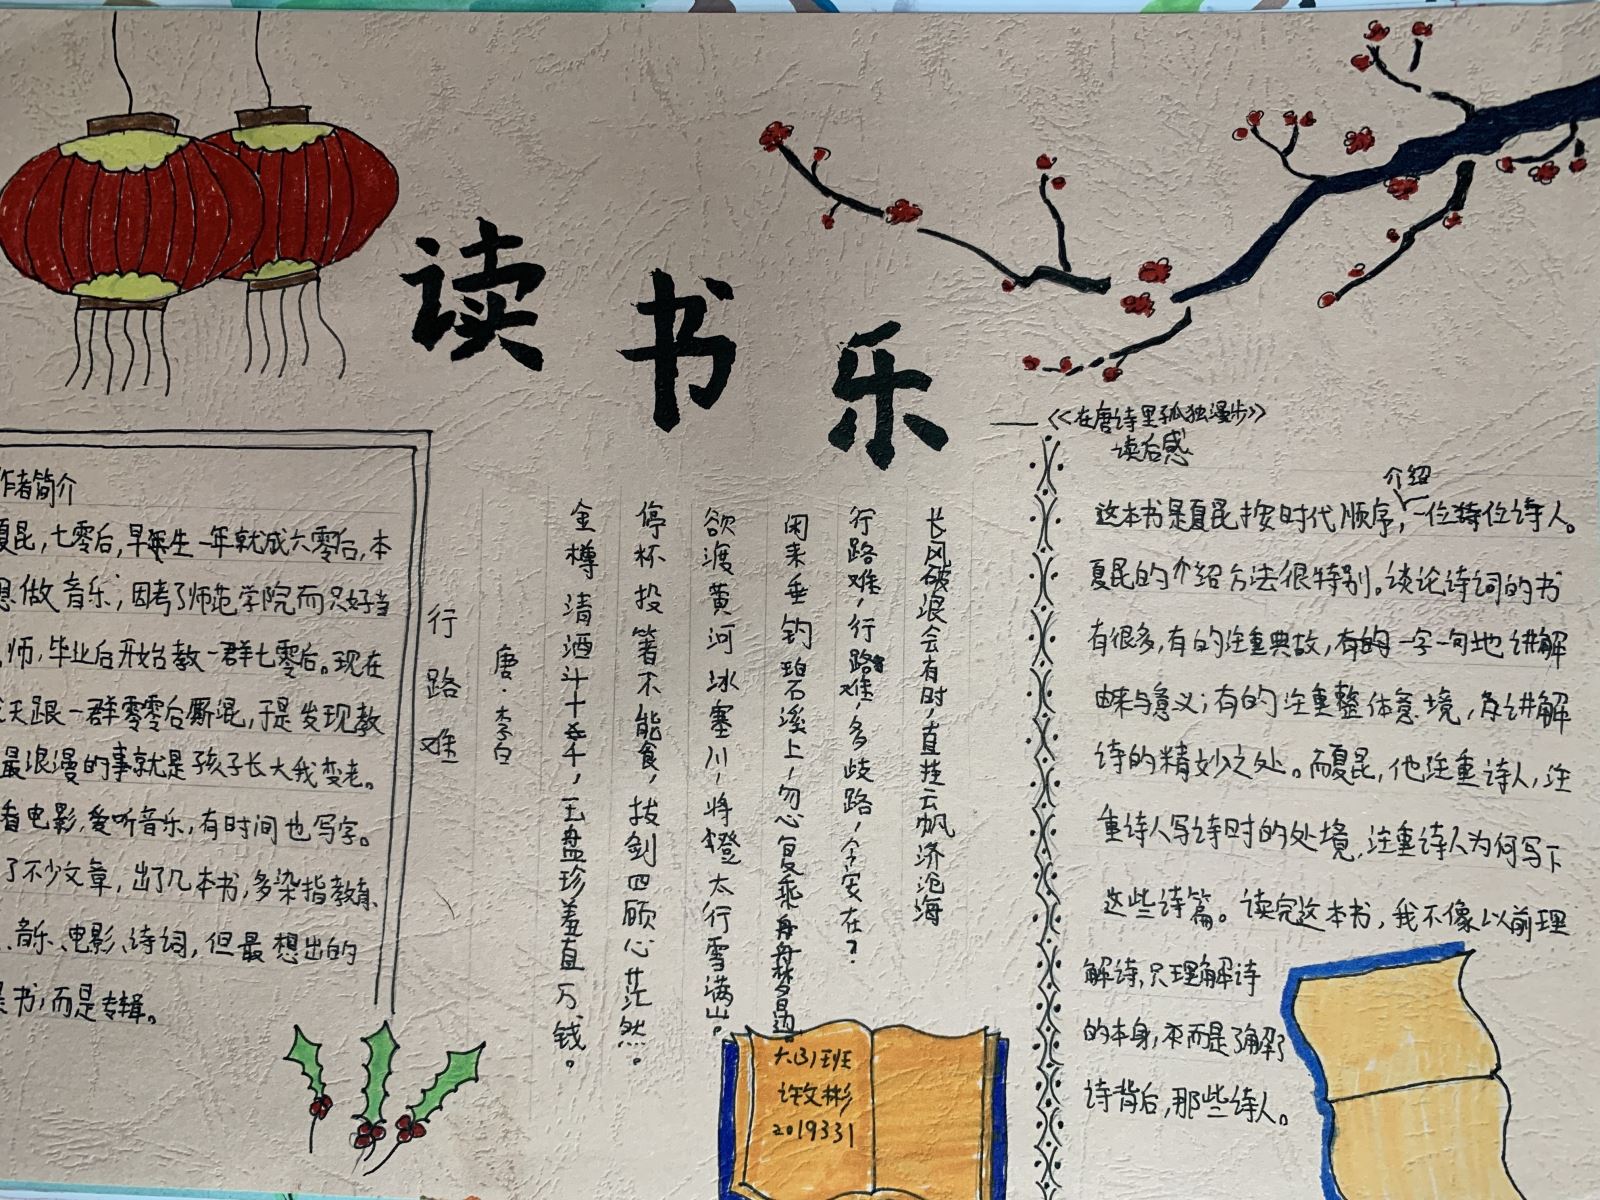 读书乐
——《在唐诗里孤独漫步》
读后感
作者简介
夏昆，七零后，早生一年就成六零后，本
想做音乐；因考了师范学院而只好当
师，毕业后开始教一群七零后。现在
天跟一群零零后厮混，于是发现教
最浪漫的事就是孩子长大我变老。
看电影，爱听音乐，有时间也写字。
了不少文章，出了几本书，多染指教育、
、音乐、电影、诗词，但最想出的
是书，而是专辑。
行路难
唐·李白
金樽清酒斗十千，玉盘珍羞直万钱。
停杯投箸不能食，拔剑四顾心茫然。
欲渡黄河冰塞川，将登太行雪满山。
闲来垂钓碧溪上，忽复乘舟梦日边。
行路难，行路难，多歧路，今安在？
长风破浪会有时，直挂云帆济沧海
这本书是夏昆按时代顺序，介绍一位位诗人。
夏昆的介绍方法很特别。谈论诗词的书
有很多，有的注重典故，一字一句地讲解
由来与意义；有的注重整体意境，讲解
诗的精妙之处。而夏昆，他注重诗人，注
重诗人写诗时的处境，注重诗人为何写下
这些诗篇。读完这本书，我不像以前理
解诗，只理解诗
的本身，而是了解了
诗背后，那些诗人。
六(3)班
许文彬
2019331